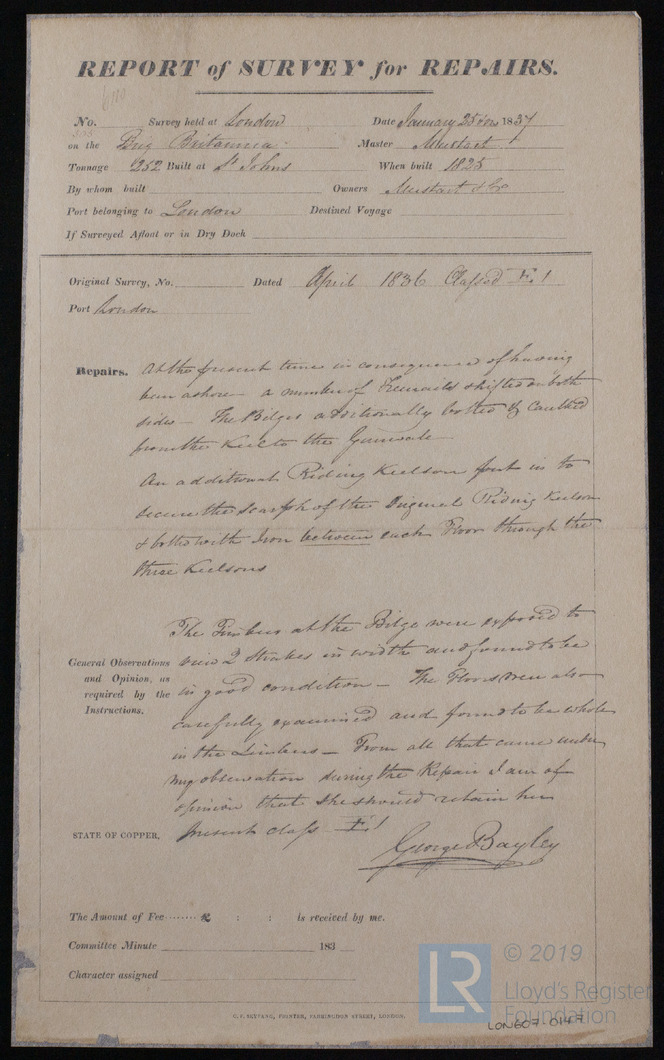 REPORT of SURVEY for REPAIRS.
No. Survey held at London Date January 25 1837
on the Brig Britannia Master Mustart
Tonnage 252 Built at St Johns When built 1825
By whom built Owners Mustart & Co
Port belonging to London Destined Voyage
If Surveyed Afloat or in Dry Dock
Original Survey, No. Dated April 1836 Classed Æ 1
Port London
Repairs. At the present time in consequence of having
been ashore a number of Treenails shifted on both
sides – The Bilges additionally bolted & Caulked
from the Keel to the Gunwale
An additional Riding Keelson put in to
secure the Scarph of the Original Riding Keelson
& bolted with Iron between each Floor through the
three Keelsons
General Observations and Opinion, as required by the Instructions.
The Timbers at the Bilge were exposed to
view 2 Strakes in width and found to be
in good condition – The Floors were also
carefully examined and found to be whole
in the Limbers – From all that came under
my observation during the Repair I am of
opinion that She should retain her
present class Æ 1
STATE OF COPPER,
George Bayley
The Amount of Fee ........ £ : : is received by me.
Committee Minute 183
Character assigned
PRINTER, FARRINGDON STREET, LONDON.
LR
© 2019
Lloyd's Register
Foundation
LON607-0147